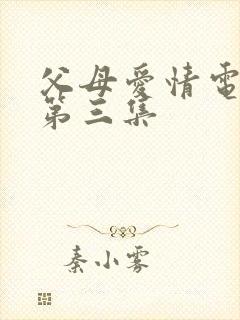 父母愛情電
第三集
秦小雾